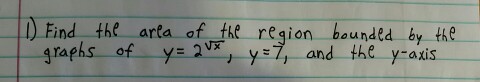 1) Find the area of the region bounded by the
graphs of y = 2^√x, y = 7, and the y-axis